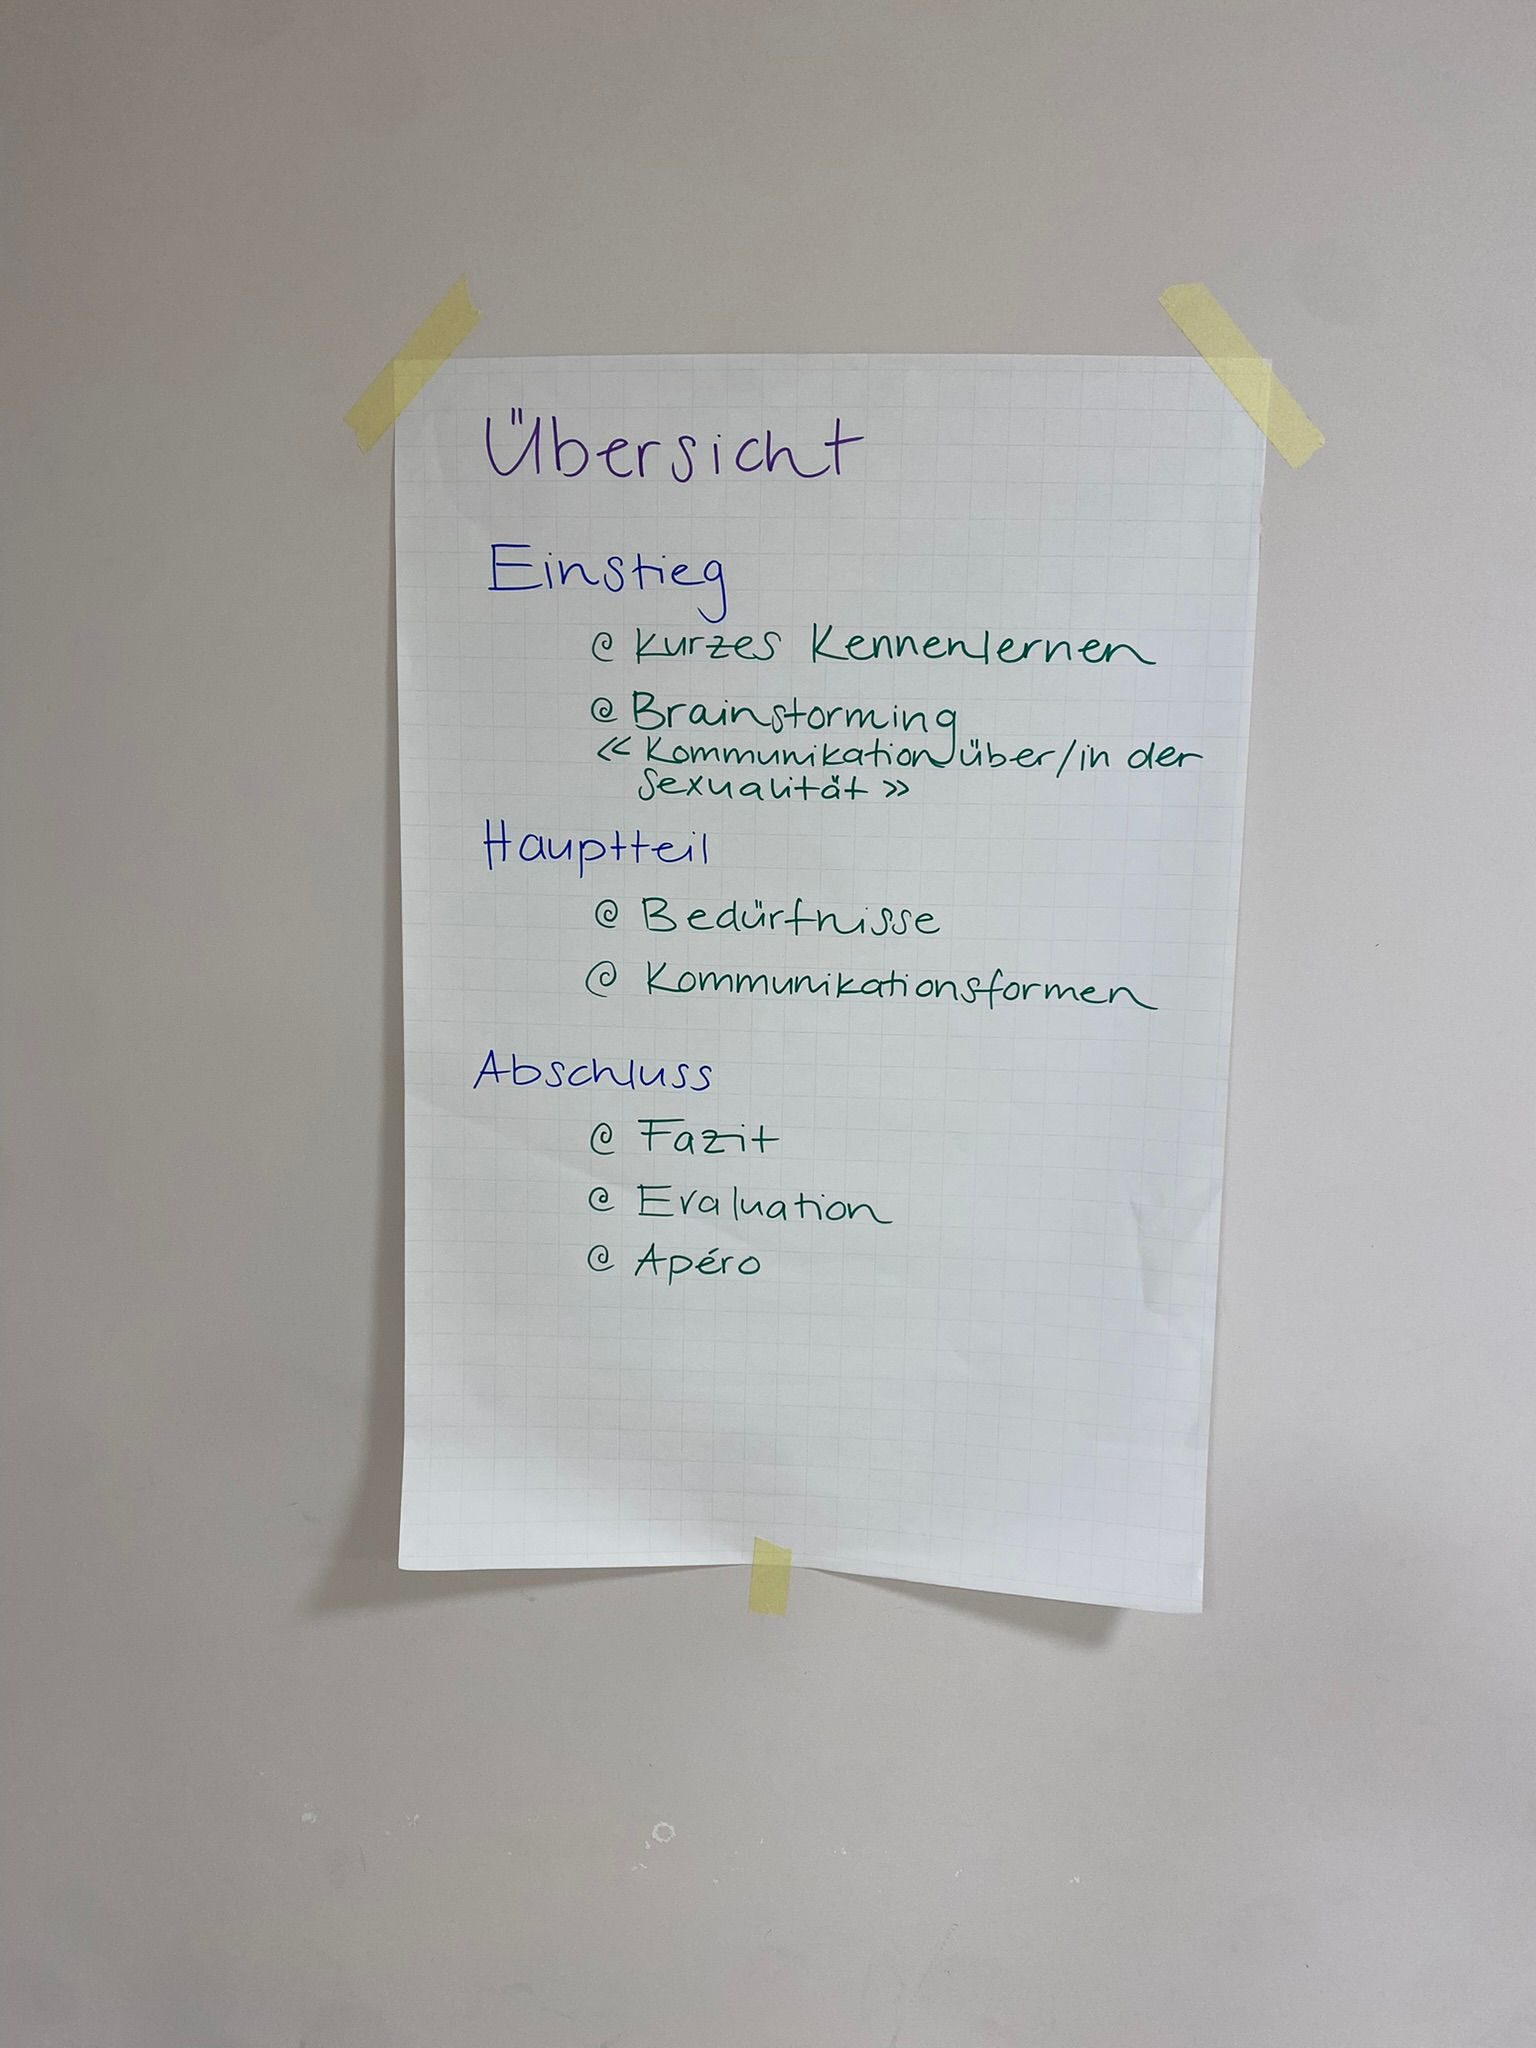 Übersicht
Einstieg
@ Kurzes Kennenlernen
@ Brainstorming
<< Kommunikation über/in der
Sexualität >>
Hauptteil
@ Bedürfnisse
@ Kommunikationsformen
Abschluss
@ Fazit
@ Evaluation
@ Apéro